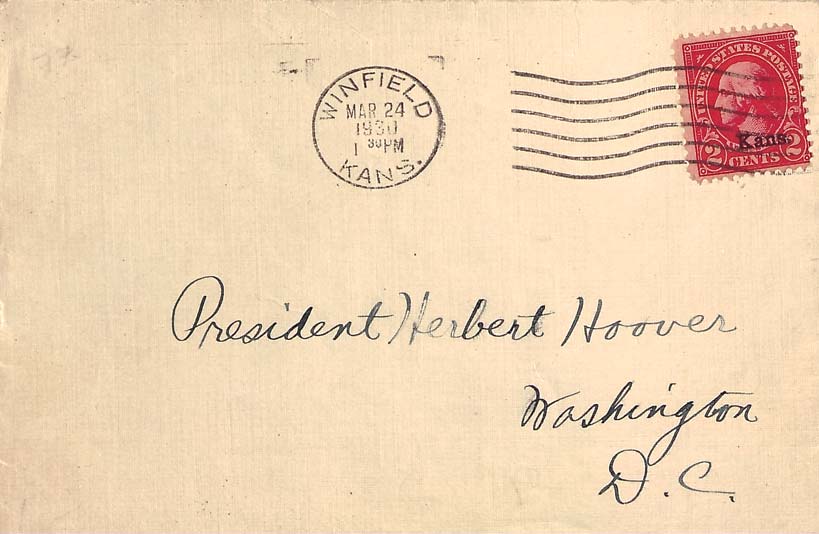 WINFIELD
MAR 24
1930
1 30PM
KANS.
UNITED STATES POSTAGE
Kans.
2 CENTS 2
President Herbert Hoover
Washington
D. C.